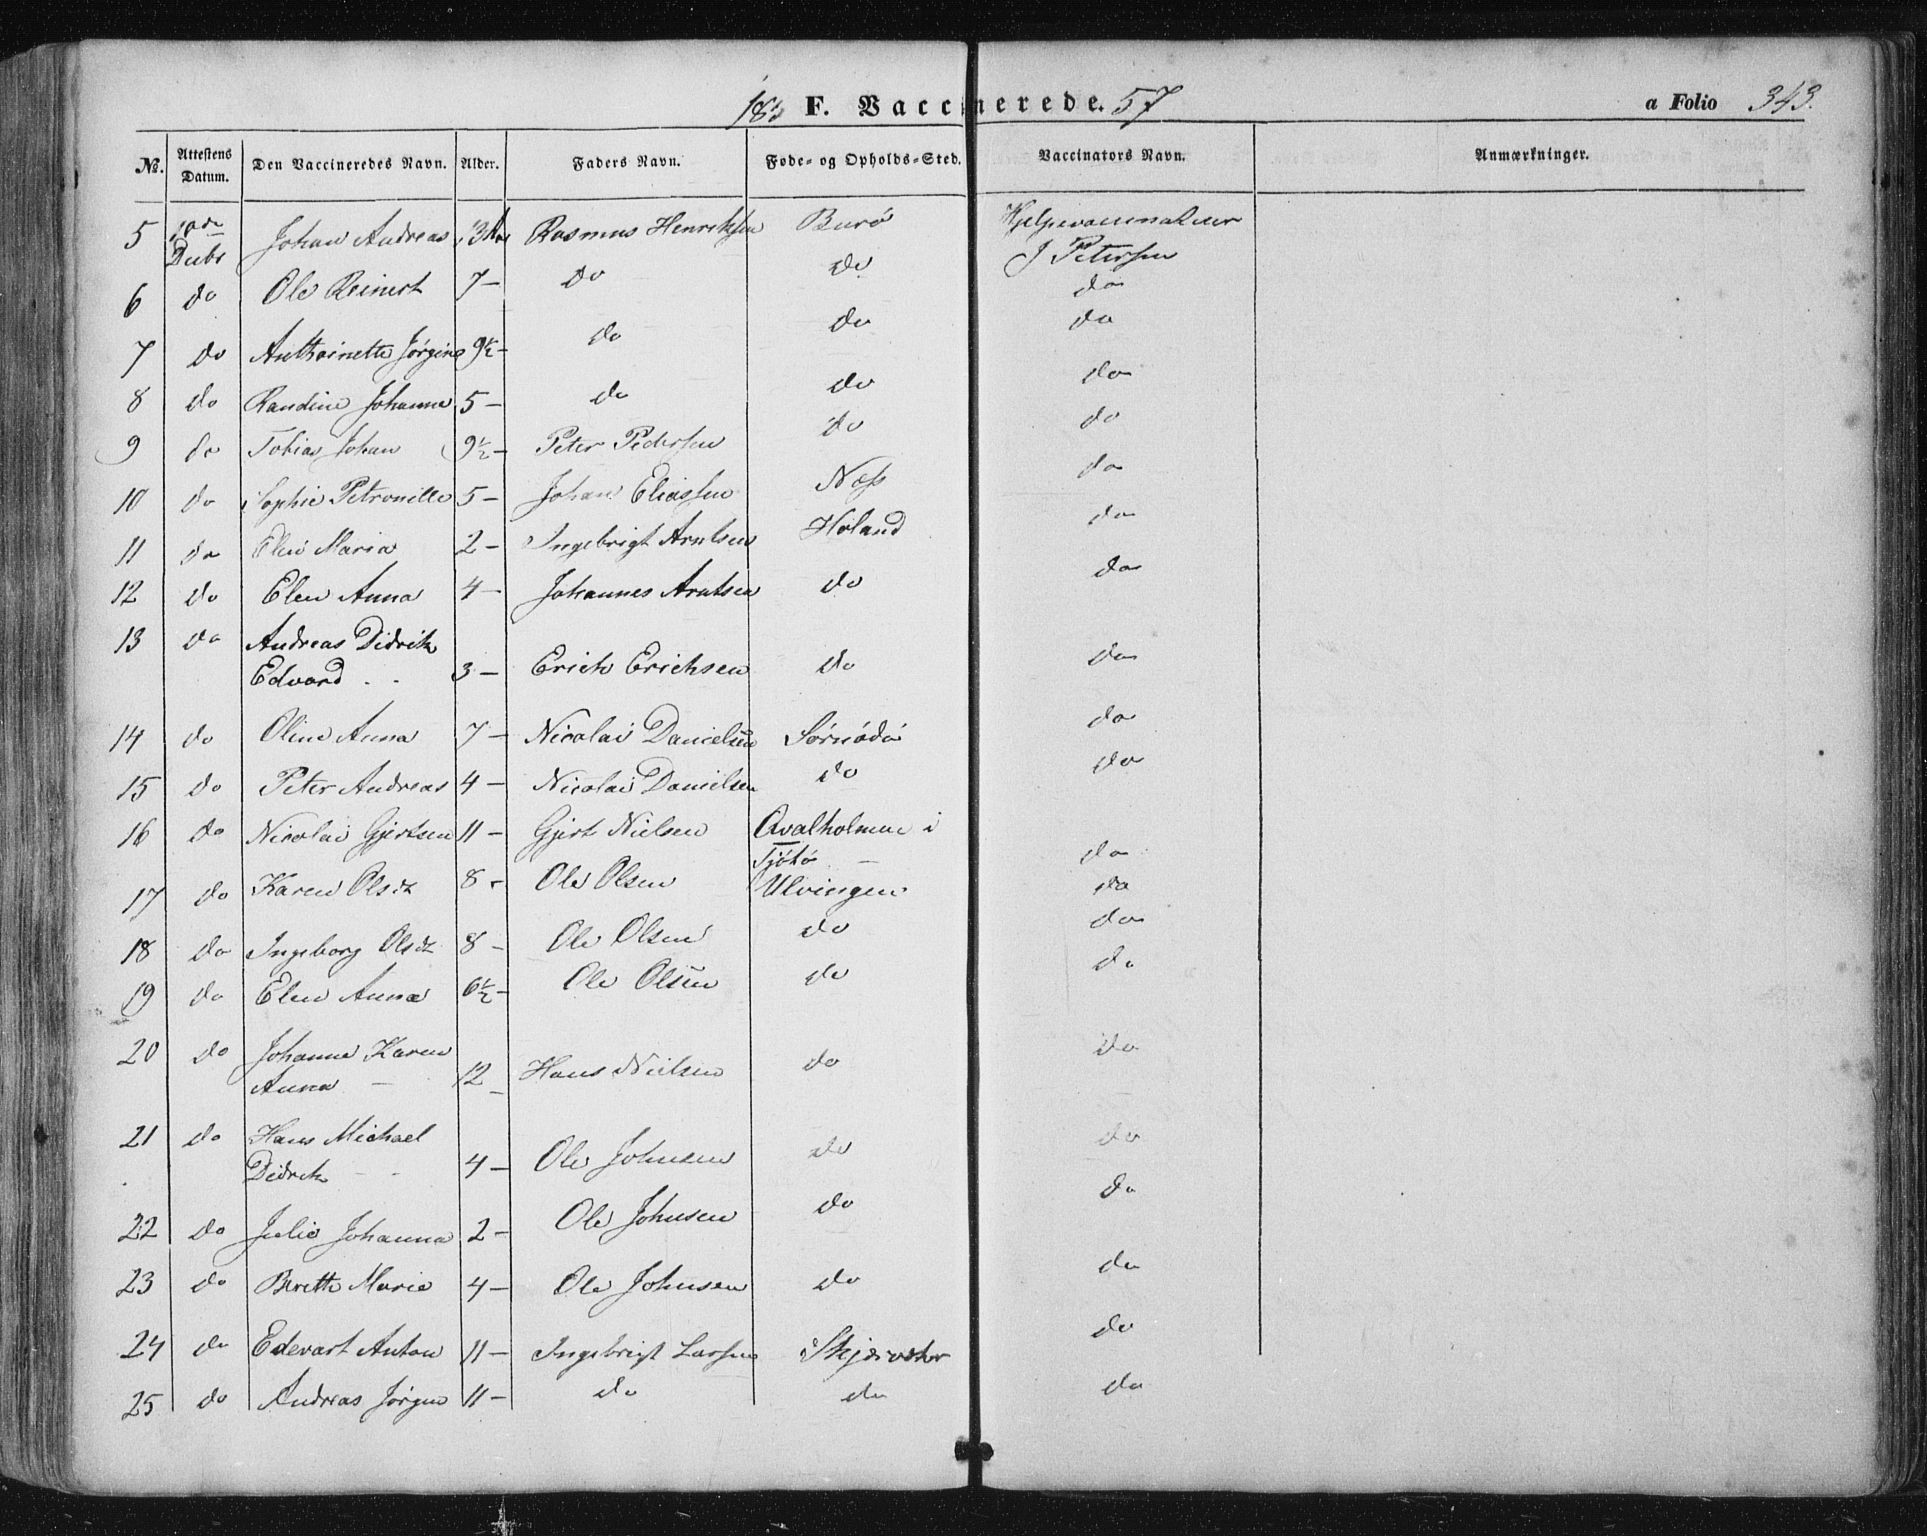 185 F. Vaccinerede. 57 a Folio 343.
No. Attestens Datum. Den Vaccineredes Navn. Alder. Faders Navn. Føde- og Opholds-Sted. Vaccinators Navn. Anmærkninger.
5 10de Dcbr Johan Andreas 13 Rasmus Henriksen Burø Hjelpevaccinateur J Petersen
6 do Ole Reinert 7 – do do do
7 do Anthoinette Jørgine 9½ – do do do
8 do Randine Johanna 5 – do do do
9 do Tobias Johan 9½ – Peter Pedersen do do
10 do Sophie Petronille 5 – Johan Eliassen Næss do
11 do Elen Maria 2 – Ingebrigt Arntsen Holand do
12 do Elen Anna 4 – Johannes Arntsen do do
13 do Andreas Didrik
Edvard 3 – Erich Erichsen do do
14 do Oline Anna 7 – Nicolai Danielsen do
15 do Peter Andreas 4 – Nicolai Danielsen do do
16 do Nicolai Gjertsen 11 – Gjert Nielsen Qvalholmen i
Tjøtø – do
17 do Karen Olsdt 8 – Ole Olsen Ulvingen do
18 do Ingeborg Olsdt 8 – Ole Olsen do do
19 do Elen Anna 6½ – Ole Olsen do do
20 do Johanna Karen
Anna – 12 – Hans Nielsen do do
21 do Hans Michael
Didrik – 4 – Ole Johnsen do do
22 do Julie Johanna 2 – Ole Johnsen do do
23 do Berette Marie 4 – Ole Johnsen do do
24 do Edevart Anton 11 – Ingebrigt Larsen do
25 do Andreas Jørgen 11 – do do do